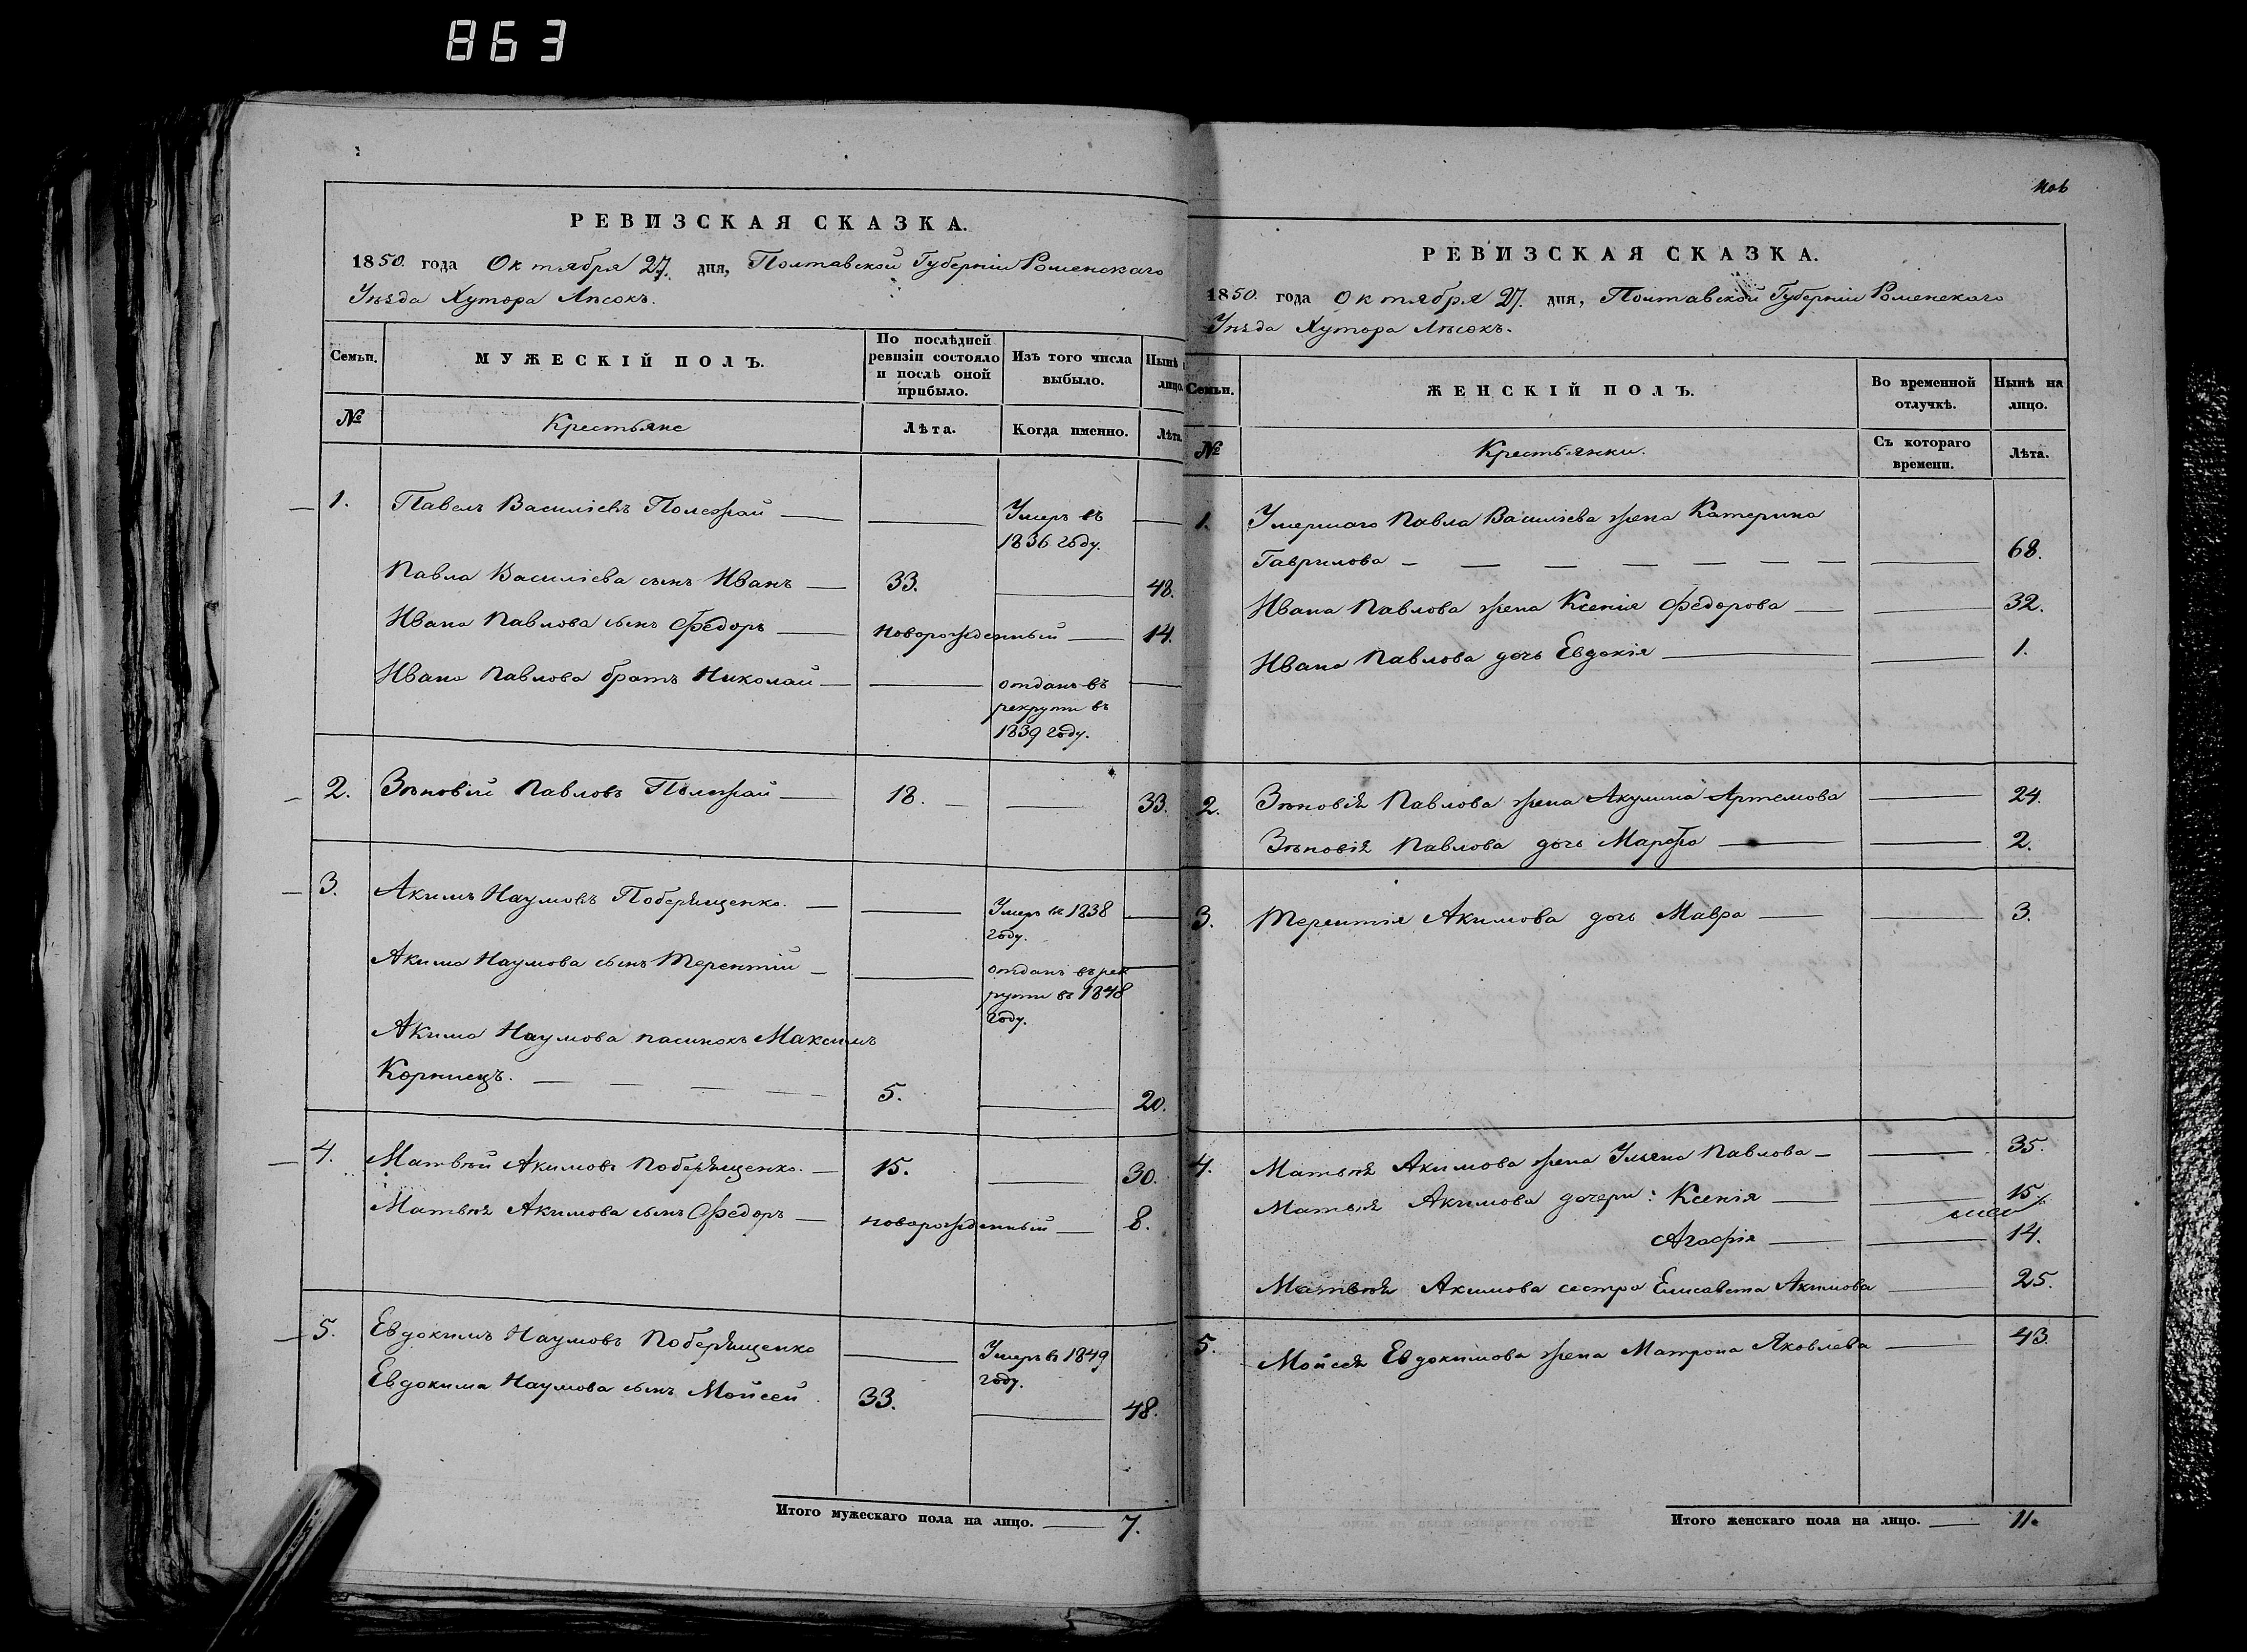 863
РЕВИЗСКАЯ СКАЗКА.
1850. года Октября 27. дня, Полтавской Губерніи Роменскаго
Уѣзда Хутора Лѣсокъ.
Семьи.
МУЖЕСКІЙ ПОЛЪ.
По послѣдней ревизіи состояло и послѣ оной прибыло.
Изъ того числа выбыло.
Нынѣ
лицо.
№
Крестьяне
Лѣта.
Когда именно.
Лѣта.
1. Павелъ Василіевъ Полежай — — Умеръ въ —
1836 году.
Павла Василіева сынъ Иванъ — 33. — 48.
Ивана Павлова сынъ Федоръ — новорожденный — 14.
Ивана Павлова братъ Николай — — отданъ въ —
рекруты въ
1839 году.
2. Зѣновій Павловъ Полежай — 18. — — 33.
3. Акимъ Наумовъ Поберищенко. — — Умеръ въ 1838 —
году.
Акима Наумова сынъ Терентій — — отданъ въ рек —
руты въ 1848
году.
Акима Наумова пасинокъ Максимъ
Корниецъ. — — — — 5. — 20.
4. Матвѣй Акимовъ Поберищенко. — 15. — 30.
Матвѣя Акимова сынъ Федоръ — новорожденный — 8.
5. Евдокимъ Наумовъ Поберищенко — Умеръ въ 1849
году.
Евдокима Наумова сынъ Мойсей. 33. — 48.
Итого мужескаго пола на лицо. — 7.
РЕВИЗСКАЯ СКАЗКА.
1850. года Октября 27. дня, Полтавской Губерніи Роменскаго
Уѣзда Хутора Лѣсокъ.
Семьи.
ЖЕНСКІЙ ПОЛЪ.
Во временной отлучкѣ.
Нынѣ на лицо.
№
Крестьянки.
Съ котораго времени.
Лѣта.
1. Умершаго Павла Василіева жена Катерина
Гаврилова — — — — — — — — 68.
Ивана Павлова жена Ксенія Федорова — — 32.
Ивана Павлова дочь Евдокія — — 1.
2. Зѣновія Павлова жена Акулина Артемова — 24.
Зѣновія Павлова дочь Марфа — — 2.
3. Терентія Акимова дочь Мавра — — 3.
4. Матвѣя Акимова жена Ульяна Павлова — — 35.
Матвѣя Акимова дочери: Ксенія — — 15
Агафія — — 14.
Матвѣя Акимова сестра Елисавета Акимова — 25.
5. Мойсея Евдокимова жена Матрона Яковлева — 43.
Итого женскаго пола на лицо. — 11.